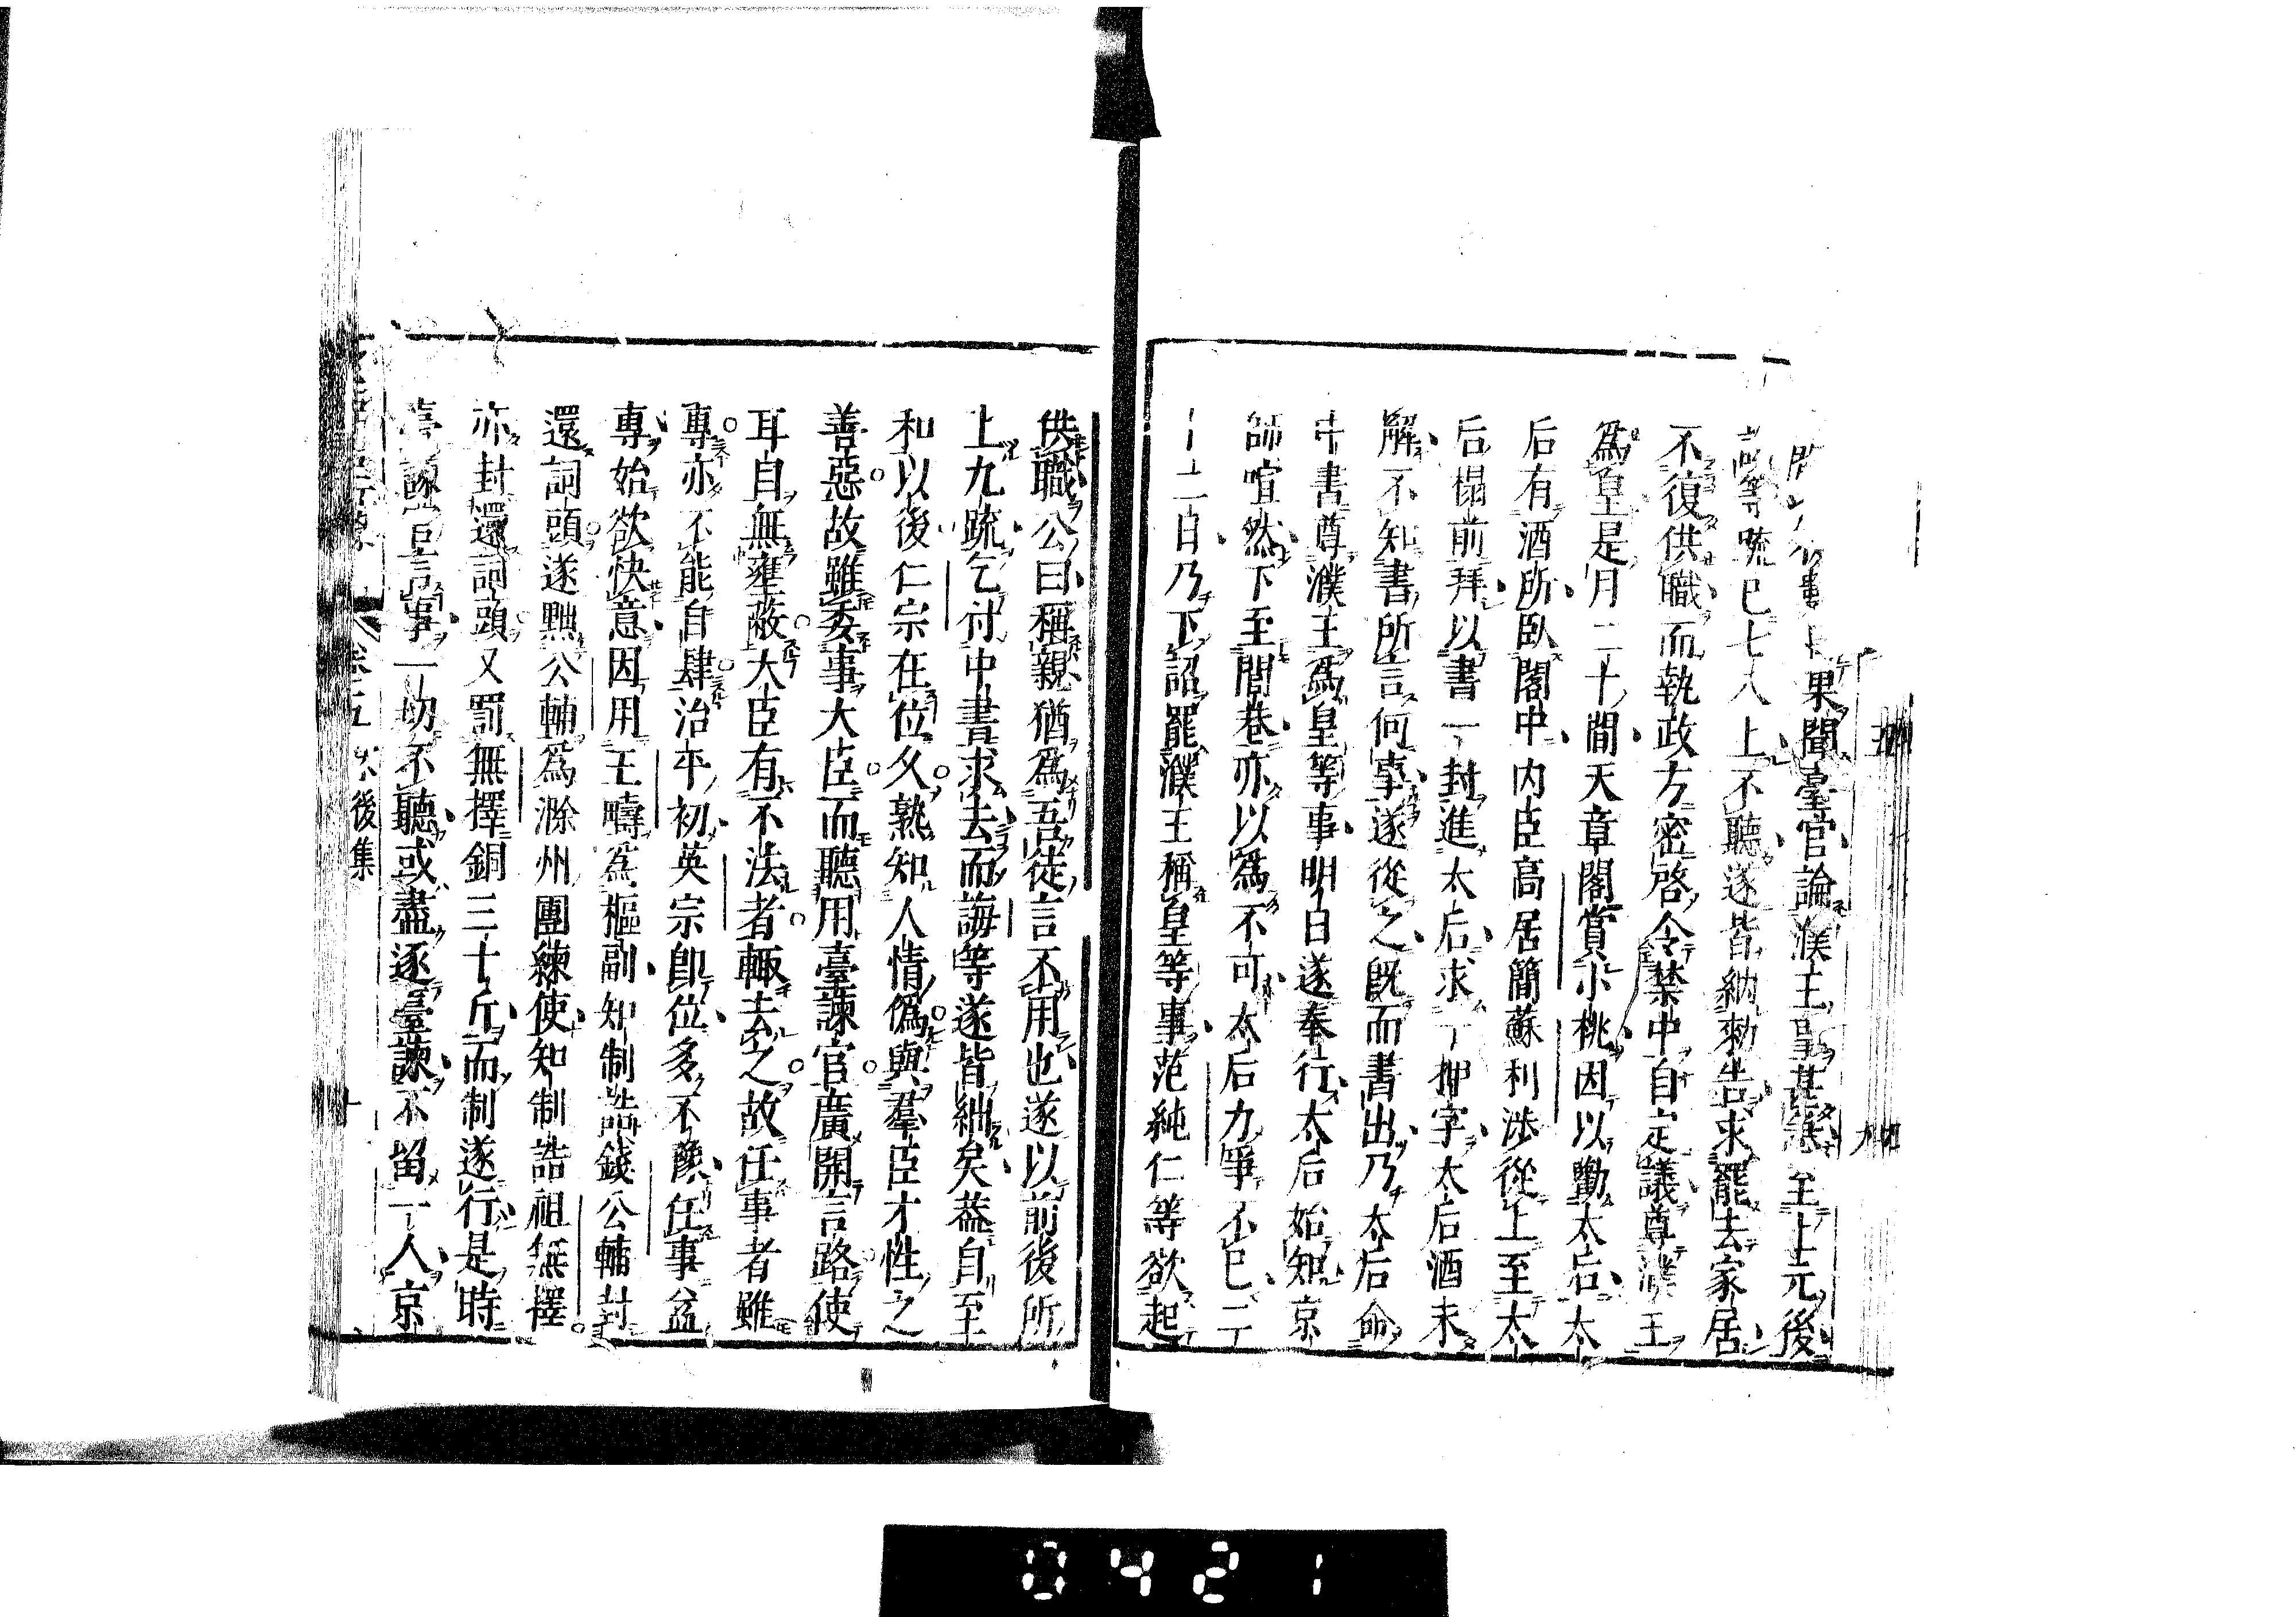 果聞臺官論濮王事甚急至上元後
誨等疏已七八上不聽遂皆納勅告求罷去家居
不復供職而執政方密啓令禁中自定議尊濮王
爲皇是月二十間天章閣賞小桃因以勸太后太
后有酒所臥閣中内臣高居簡蘇利涉從上至太
后榻前拜以書一封進太后求一押字太后酒未
解不知書所言何事遂從之既而書出乃太后命
中書尊濮王爲皇等事明白遂奉行太后始知京
師喧然下至閭巷亦以爲不可太后力爭不已二
十二日乃下詔罷濮王稱皇等事范純仁等欲起
供職公曰稱親猶爲吾徒言不用也遂以前後所
上九疏乞付中書求去而誨等遂皆絀矣葢自至
和以後仁宗在位久熟知人情僞與羣臣才性之
善惡故雖委事大臣而聽用臺諫官廣開言路使
耳目無壅蔽大臣有不法者輙去之故任事者雖
專亦不能自肆治平初英宗即位多不豫任事益
專始欲快意因用王疇爲樞副知制誥錢公輔封
還詞頭遂黜公輔爲滁州團練使知制誥祖無擇
亦封還詞頭又罰無擇銅三十斤而制遂行是時
臺諫官言事一切不聽或盡逐臺諫不留一人京
卷五 後集
0421